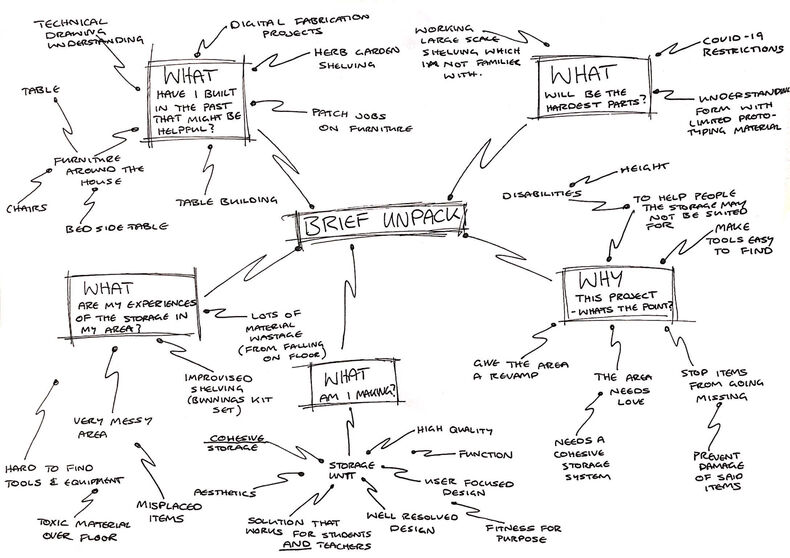 TECHNICAL
DRAWING
UNDERSTANDING
DIGITAL FABRICATION
PROJECTS
HERB GARDEN
SHELVING
PATCH JOBS
ON FURNITURE
TABLE BUILDING
WHAT
HAVE I BUILT
IN THE PAST
THAT MIGHT BE
HELPFUL?
TABLE
FURNITURE
AROUND THE
HOUSE
CHAIRS
BED SIDE TABLE
WORKING
LARGE SCALE
SHELVING WHICH
I'M NOT FAMILIER
WITH.
WHAT
WILL BE THE
HARDEST PARTS?
COVID-19
RESTRICTIONS
UNDERSTANDING
FORM WITH
LIMITED PROTO-
TYPING MATERIAL
BRIEF UNPACK
HEIGHT
DISABILITIES
TO HELP PEOPLE
THE STORAGE MAY
NOT BE SUITED
FOR
MAKE
TOOLS EASY
TO FIND
WHY
THIS PROJECT
-WHATS THE POINT?
GIVE THE AREA
A REVAMP
THE AREA
NEEDS
LOVE
NEEDS A
COHESIVE
STORAGE
SYSTEM
STOP ITEMS
FROM GOING
MISSING
PREVENT
DAMAGE
OF SAID
ITEMS
WHAT
ARE MY EXPERIENCES
OF THE STORAGE IN
MY AREA?
LOTS OF
MATERIAL
WASTAGE
(FROM FALLING
ON FLOOR)
IMPROVISED
SHELVING
(BUNNINGS KIT
SET)
VERY MESSY
AREA
HARD TO FIND
TOOLS & EQUIPMENT
TOXIC MATERIAL
OVER FLOOR
MISPLACED
ITEMS
WHAT
AM I MAKING?
STORAGE
UNIT
COHESIVE
STORAGE
AESTHETICS
SOLUTION THAT
WORKS FOR STUDENTS
AND TEACHERS
HIGH QUALITY
FUNCTION
USER FOCUSED
DESIGN
WELL RESOLVED
DESIGN
FITNESS FOR
PURPOSE